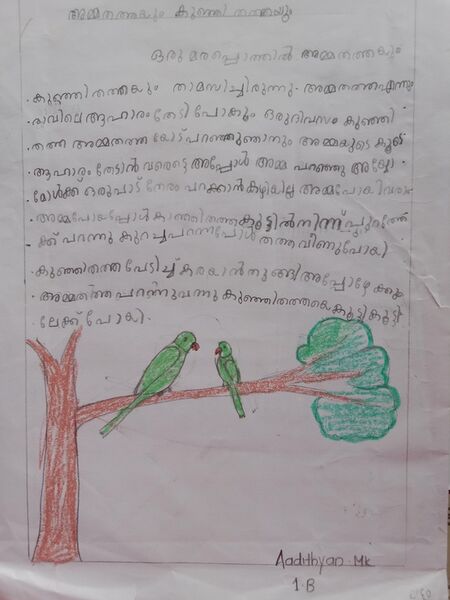 അമ്മതത്തയും കുഞ്ഞിതത്തയും
ഒരു മരപ്പൊത്തിൽ അമ്മതത്തയും
കുഞ്ഞിതത്തയും താമസിച്ചിരുന്നു. അമ്മതത്ത എന്നും
രാവിലെ ആഹാരം തേടി പോകും ഒരുദിവസം കുഞ്ഞി
തത്ത അമ്മതത്തയോട് പറഞ്ഞു ഞാനും അമ്മയുടെ കൂടെ
ആഹാരം തേടാൻ വരട്ടെ അപ്പോൾ അമ്മ പറഞ്ഞു അയ്യോ
മോൾക്ക് ഒരുപാട് നേരം പറക്കാൻ കഴിയില്ല അമ്മപോയിവരാം
അമ്മപോയപ്പോൾ കുഞ്ഞിതത്ത കൂട്ടിൽ നിന്ന് പുറത്തേ
ക്ക് പറന്നു കുറച്ചു പറന്നപോൾ തത്ത വീണുപോയി
കുഞ്ഞിതത്ത പേടിച്ച് കരയാൻ തുടങ്ങി അപ്പോഴേക്കും
അമ്മതത്ത പറന്നുവന്നു കുഞ്ഞിതത്തയെ കൂട്ടി കൂട്ടി
ലേക്ക് പോയി.
Aadithyan. Mk
1. B